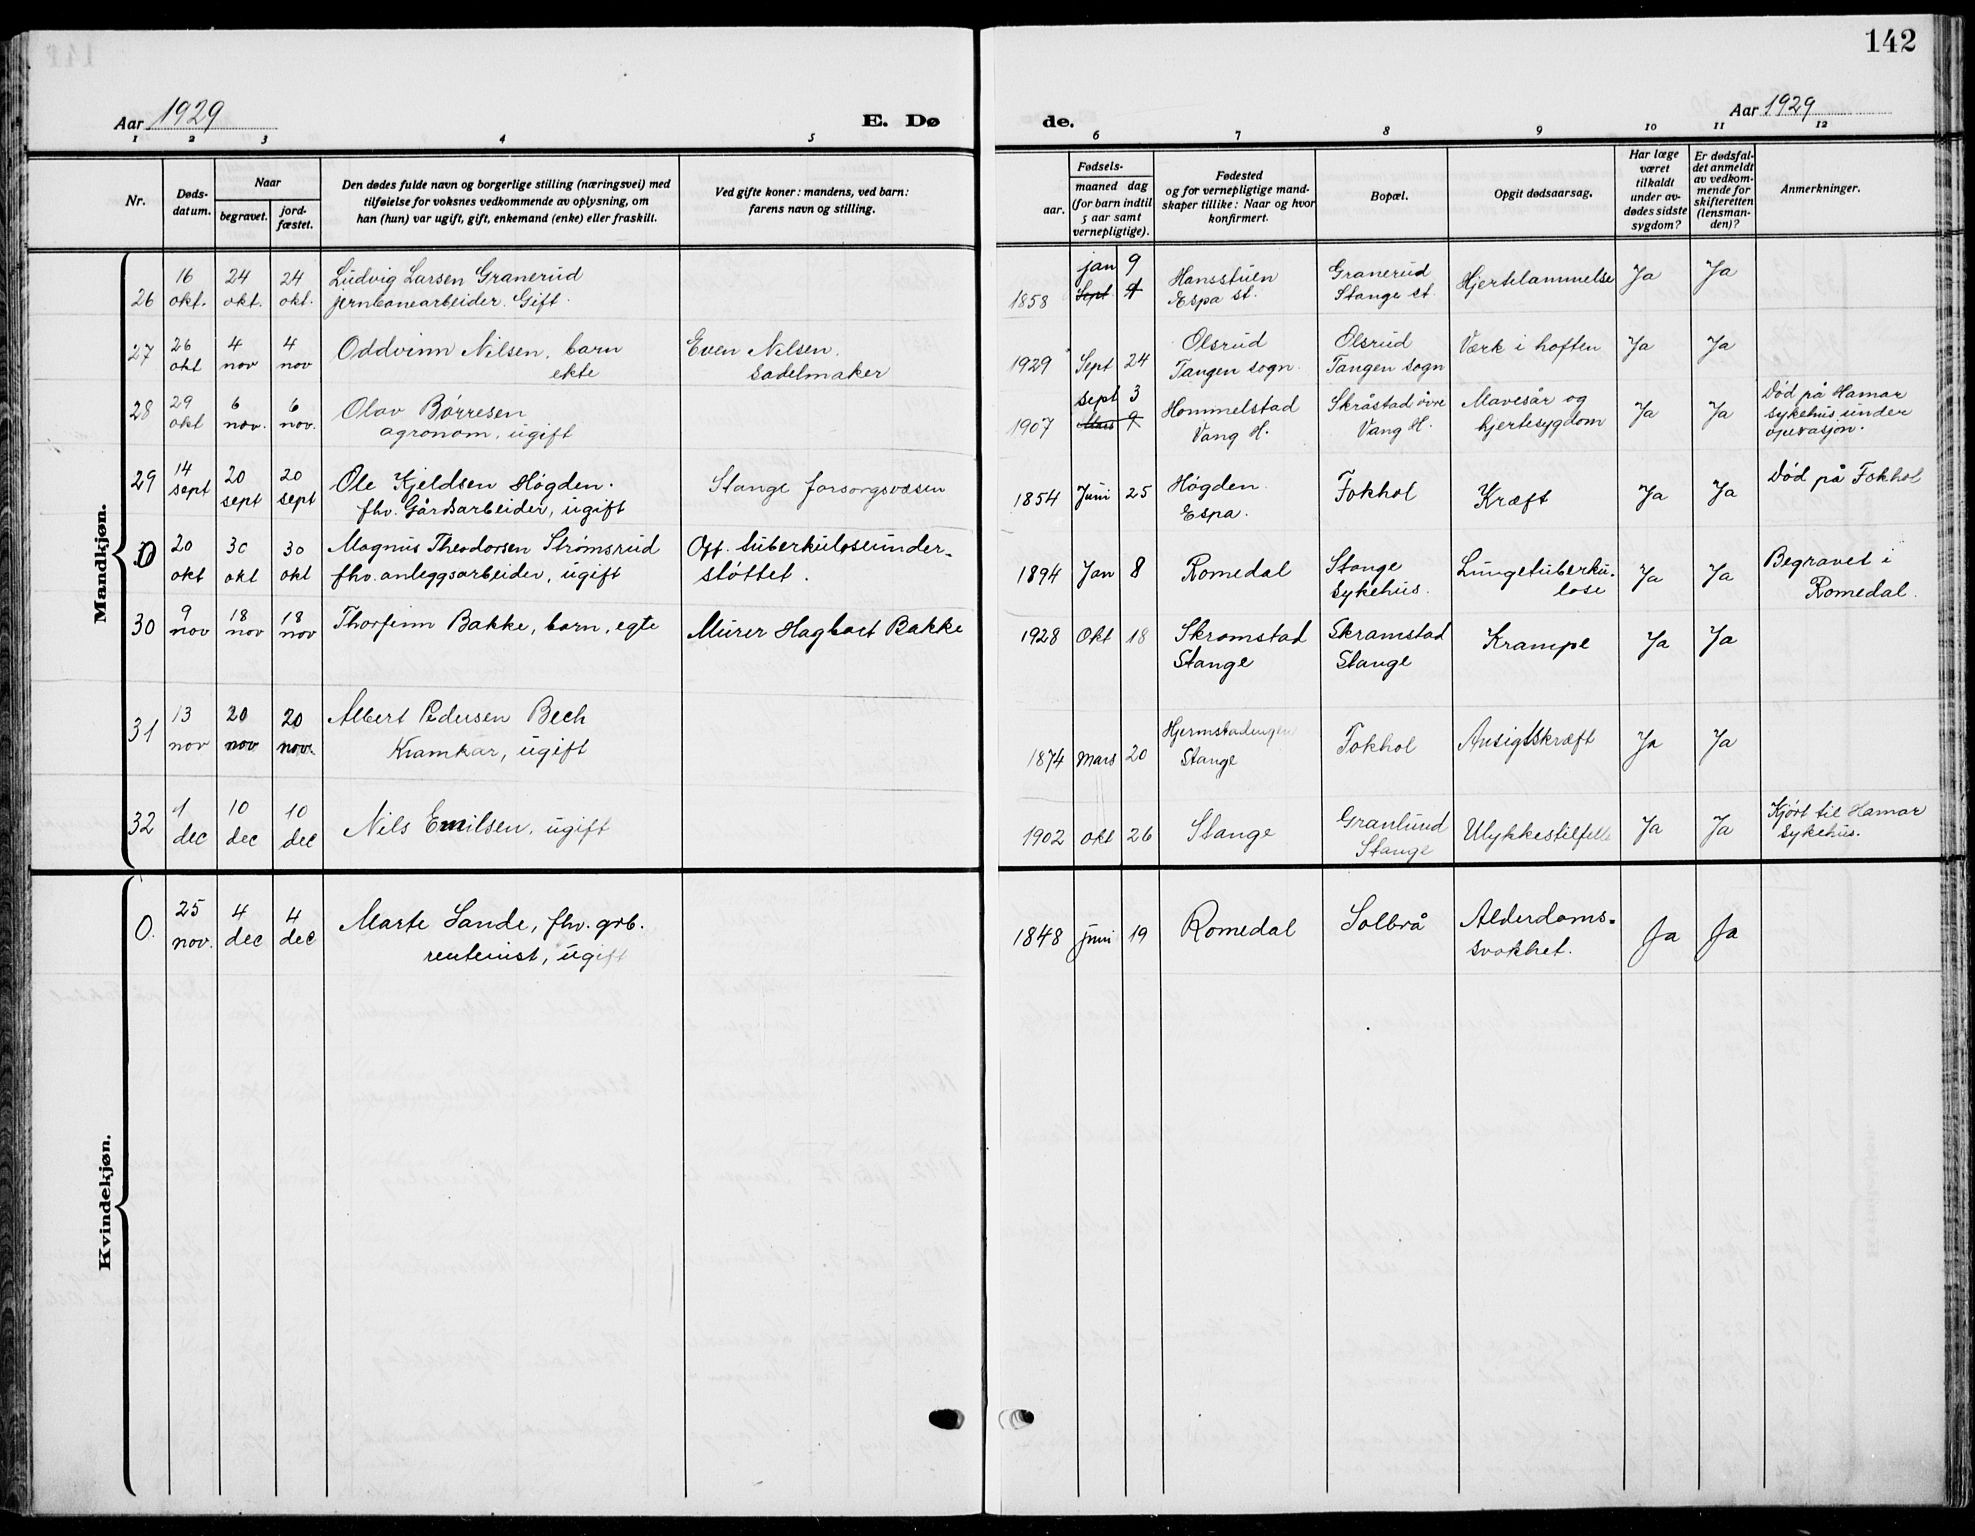 142
Aar 1929
E. Dø
de.
Aar 1929
1 2 3 4 5 6 7 8 9 10 11 12
Nr.
Døds-
datum.
Naar
begravet.
jord-
fæstet.
Den dødes fulde navn og borgerlige stilling (næringsvei) med
tilføielse for voksnes vedkommende av oplysning, om
han (hun) var ugift, gift, enkemand (enke) eller fraskilt.
Ved gifte koner: mandens, ved barn:
farens navn og stilling.
Fødsels-
aar.
maaned dag
(for barn indtil
5 aar samt
vernepligtige).
Fødested
og for vernepligtige mand-
skaper tillike: Naar og hvor
konfirmert.
Bopæl.
Opgit dødsaarsag.
Har læge
været
tilkaldt
under av-
dødes sidste
sygdom?
Er dødsfal-
det anmeldt
av vedkom-
mende for
skifteretten
(lensman-
den)?
Anmerkninger.
Mandkjøn.
26 16 okt. 24 okt. 24 okt. Ludvig Larsen Granerud
jernbanearbeider. Gift.
1858 jan 9 Sept 4 Hansstuen
Espa st.
Granerud
Stange st.
Hjertelammelse Ja Ja
27 26 okt 4 nov 4 nov Oddvinn Nilsen, barn
ekte
Even Nilsen.
Sadelmaker
1929 Sept 24 Olsrud
Tangen sogn.
Olsrud
Tangen sogn
Værk i hoften Ja Ja
28 29 okt 6 nov. 6 nov. Olav Børresen
agronom, ugift
1907 sept 3 Mars 9 Hommelstad
Vang H.
Skråstad øvre
Vang H.
Mavesår og
hjertesygdom
Ja Ja
Død på Hamar
sykehus under
operasjon.
29 14 sept 20 sept 20 sept Ole Kjeldsen Høgden.
fhv. Gårdsarbeider, ugift
Stange forsorgsvæsen
1854 Juni 25 Høgden.
Espa.
Fokhol Kræft Ja Ja Død på Fokhol
0 20 okt 30 okt 30 okt Magnus Theodorsen Strømsrud
fhv. anleggsarbeider, ugift
Off. tuberkuloseunder-
støttet.
1894 Jan 8 Romedal Stange
Sykehus.
Lungetuberku-
lose
Ja Ja Begravet i
Romedal.
30 9 nov 18 nov 18 nov Thorfinn Bakke, barn, egte Murer Hagbart Bakke
1928 Okt 18 Skramstad
Stange
Skramstad
Stange
Krampe Ja Ja
31 13 nov 20 nov 20 nov. Albert Pedersen Bech
Kramkar, ugift
1874 Mars 20
Stange
Fokhol Ansigtskræft Ja Ja
32 1 dec 10 dec 10 dec Nils Emilsen, ugift
1902 okt 26 Stange Granlund
Stange
Ulykkestilfelle Ja Ja
Kjørt til Hamar
Sykehus.
Kvindekjøn.
0. 25 nov. 4 dec 4 dec Marte Sande, fhv. grb.
rentenist, ugift
1848 juni 19 Romedal Solbrå Alderdoms-
svakhet.
Ja Ja